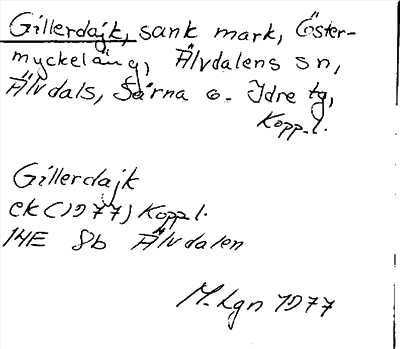 Gillerdajk, sank mark, Öster-
myckeläng, Älvdalens sn,
Älvdals, Särna o. Idre tg,
Kopp.l.
Gillerdajk
ek (1977) Kopp.l.
14E 8b Älvdalen
M. Lgn 1977